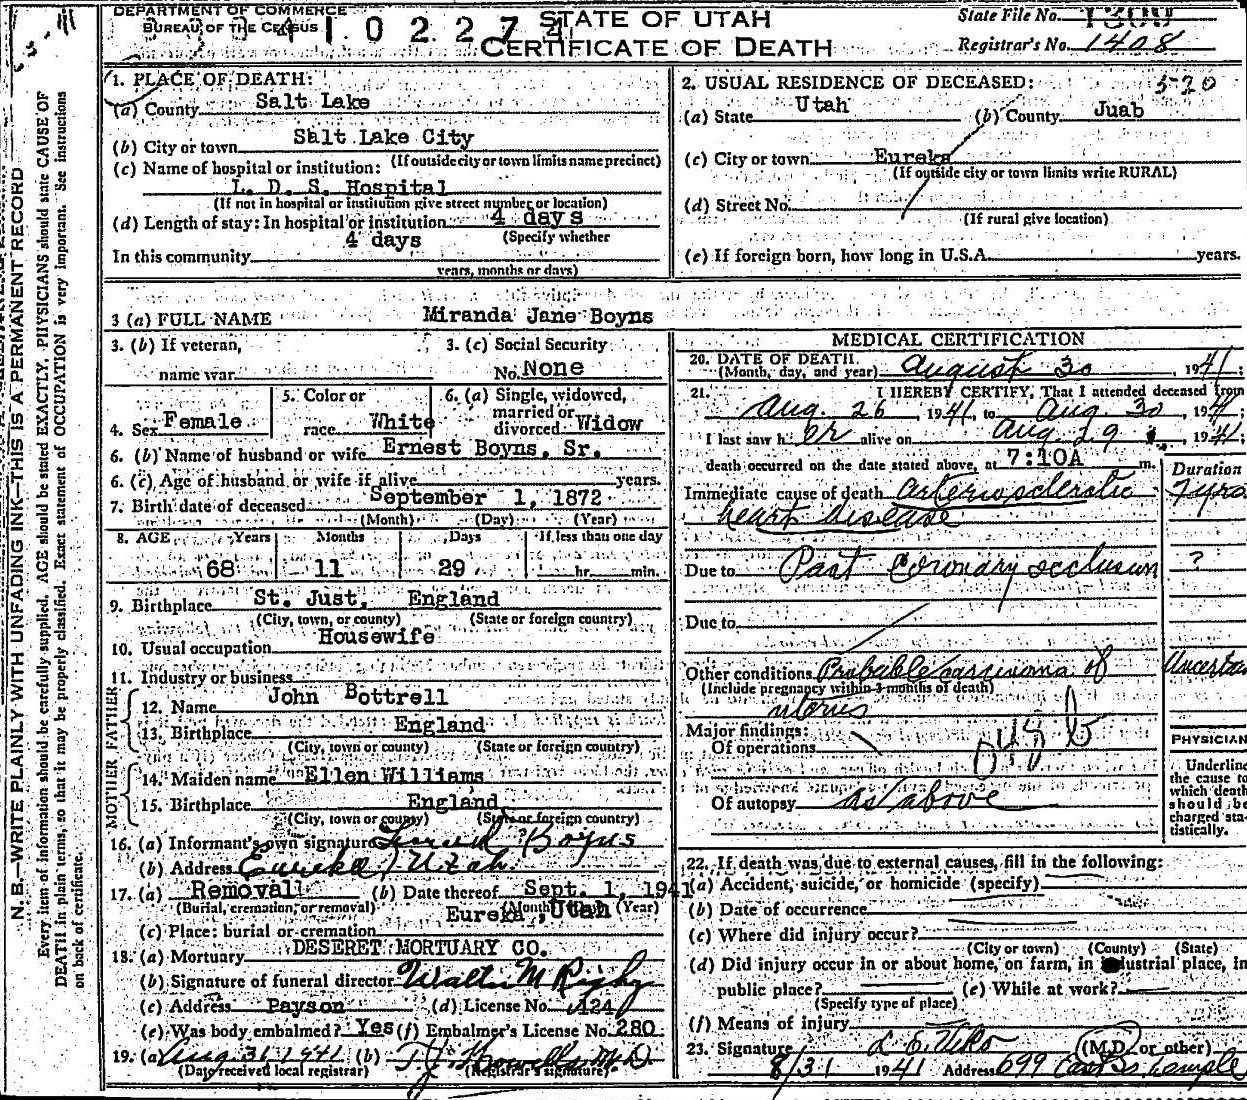 DEPARTMENT OF COMMERCE
BUREAU OF THE CENSUS
1 0 2 2 7
STATE OF UTAH
CERTIFICATE OF DEATH
State File No.
Registrar's No. 1408
N. B.—WRITE PLAINLY WITH UNFADING INK—THIS IS A PERMANENT RECORD
Every item of information should be carefully supplied. AGE should be stated EXACTLY. PHYSICIANS should state CAUSE OF
DEATH in plain terms, so that it may be properly classified. Exact statement of OCCUPATION is very important. See instructions
on back of certificate.
1. PLACE OF DEATH:
(a) County Salt Lake
(b) City or town Salt Lake City
(If outside city or town limits name precinct)
(c) Name of hospital or institution:
L. D. S. Hospital
(If not in hospital or institution give street number or location)
(d) Length of stay: In hospital or institution 4 days
(Specify whether
In this community 4 days
years, months or days)
2. USUAL RESIDENCE OF DECEASED: 5-20
(a) State Utah (b) County Juab
(c) City or town Eureka
(If outside city or town limits write RURAL)
(d) Street No.
(If rural give location)
(e) If foreign born, how long in U.S.A. years.
3 (a) FULL NAME Miranda Jane Boyns
3. (b) If veteran,
name war
3. (c) Social Security
No. None
4. Sex Female
5. Color or
race White
6. (a) Single, widowed,
married or
divorced Widow
6. (b) Name of husband or wife Ernest Boyns, Sr.
6. (c) Age of husband or wife if alive years.
7. Birth date of deceased September 1, 1872
(Month) (Day) (Year)
8. AGE Years Months Days If less than one day
68 11 29 hr. min.
9. Birthplace St. Just, England
(City, town, or county) (State or foreign country)
10. Usual occupation Housewife
11. Industry or business
FATHER
12. Name John Bottrell
13. Birthplace England
(City, town or county) (State or foreign country)
MOTHER
14. Maiden name Ellen Williams
15. Birthplace England
(City, town or county) (State or foreign country)
16. (a) Informant's own signature Boyns
(b) Address Eureka, Utah.
17. (a) Removal (b) Date thereof Sept. 1, 1941
(Burial, cremation, or removal) (Month) (Day) (Year)
(c) Place: burial or cremation Eureka, Utah
18. (a) Mortuary DESERET MORTUARY CO.
(b) Signature of funeral director Walter M Rigby
(c) Address Payson (d) License No. 424
(e) Was body embalmed? Yes (f) Embalmer's License No. 280
19. (a) Aug 31 1941 (b) T. J. Howells M.D.
(Date received local registrar) (Registrar's signature)
MEDICAL CERTIFICATION
20. DATE OF DEATH
(Month, day, and year) August 30, 1941;
21. I HEREBY CERTIFY, That I attended deceased from
Aug. 26, 1941, to Aug. 30, 1941;
I last saw her alive on Aug 29, 1941;
death occurred on the date stated above, at 7:10A m.
Duration
Immediate cause of death arteriosclerotic 7yrs
heart disease
Due to Past Coronary occlusion ?
Due to
Other conditions Probable carcinoma of Uncertain
(Include pregnancy within 3 months of death)
uterus
Major findings:
Of operations
048 b
Of autopsy as above
PHYSICIAN
Underline
the cause to
which death
should be
charged sta-
tistically.
22. If death was due to external causes, fill in the following:
(a) Accident, suicide, or homicide (specify)
(b) Date of occurrence
(c) Where did injury occur?
(City or town) (County) (State)
(d) Did injury occur in or about home, on farm, in industrial place, in
public place? (e) While at work?
(Specify type of place)
(f) Means of injury
23. Signature (M.D. or other)
8/31 1941 Address 699 East So. Temple